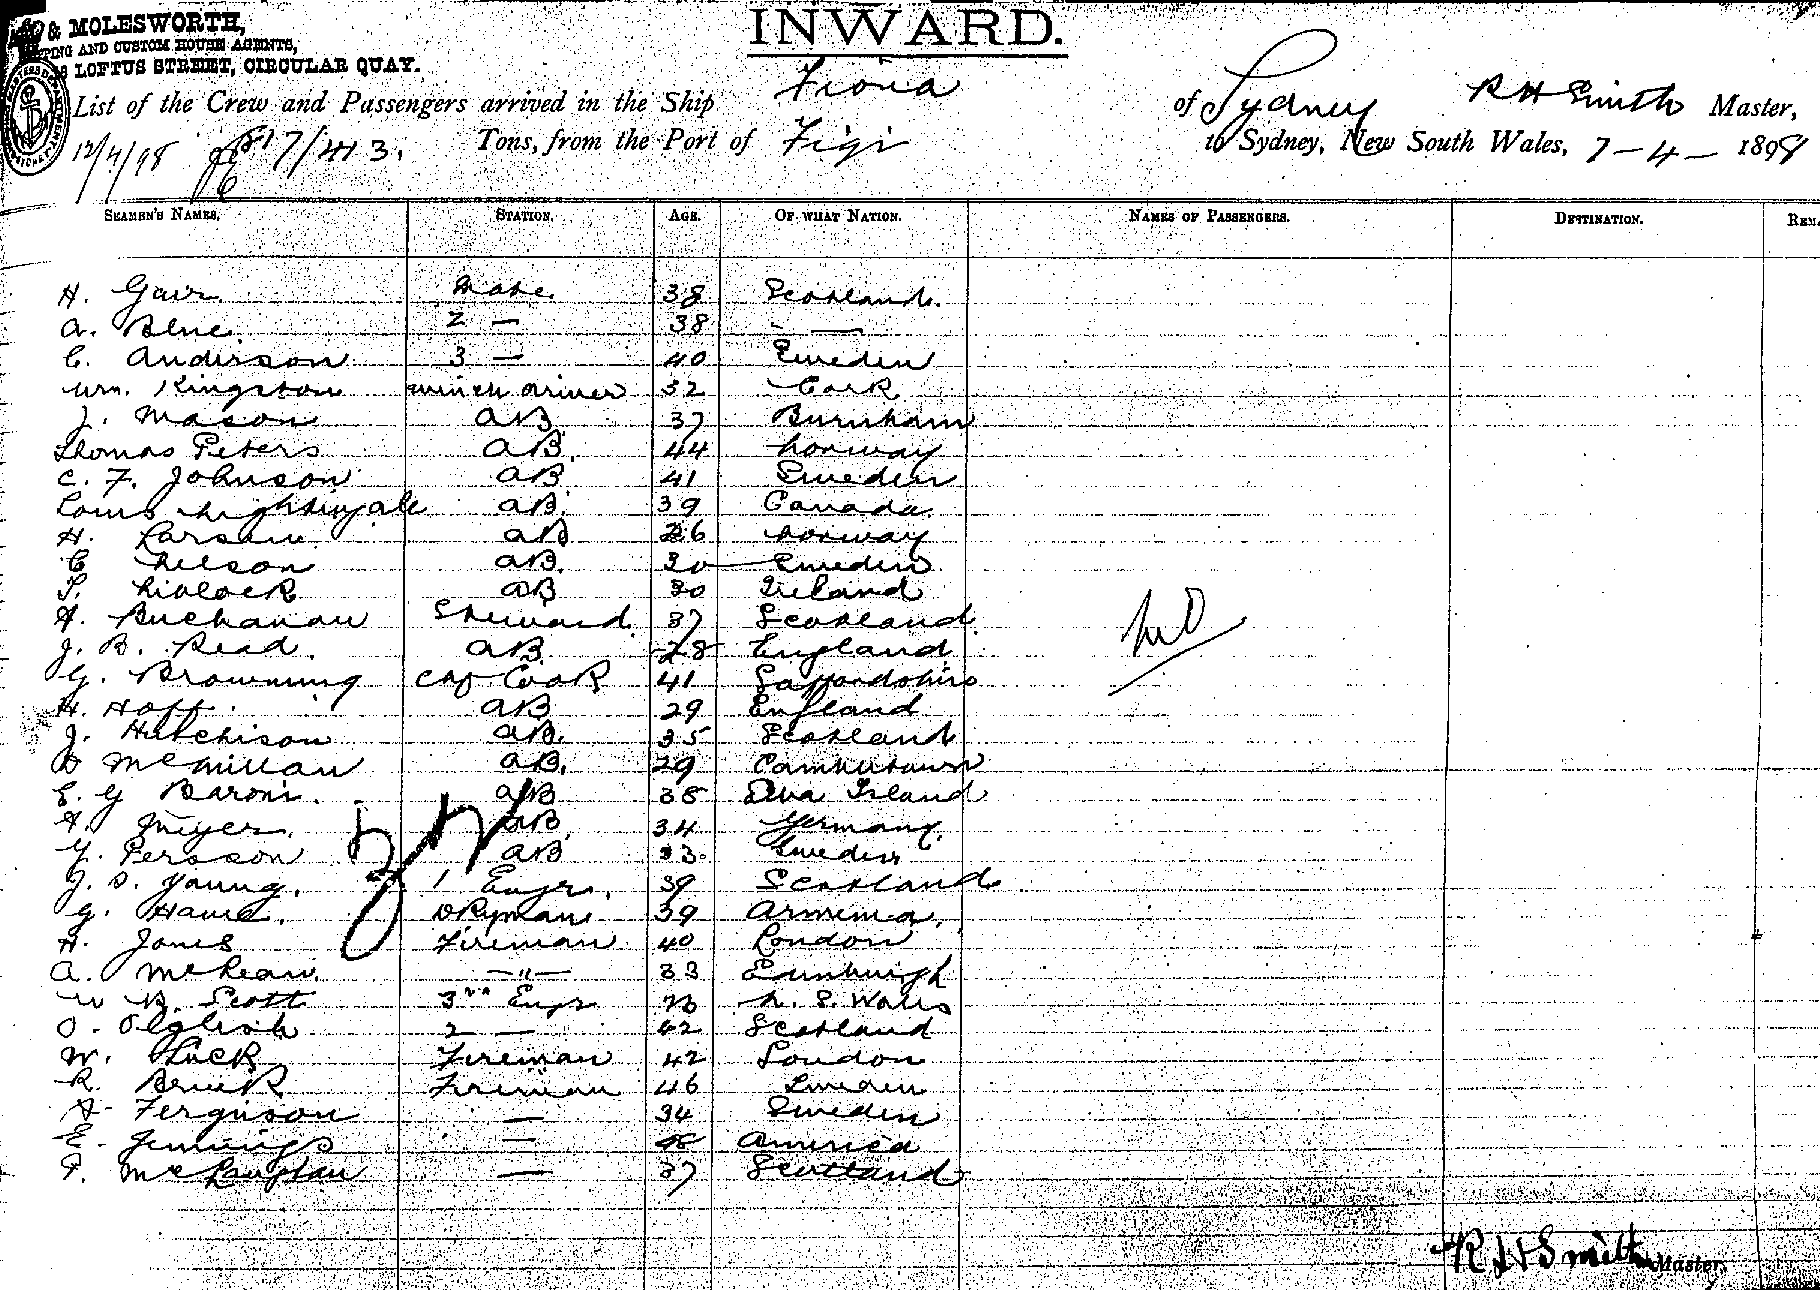 & MOLESWORTH,
PING AND CUSTOM HOUSE AGENTS,
LOFTUS STREET, CIRCULAR QUAY.
INWARD.
List of the Crew and Passengers arrived in the Ship Fiona of Sydney R H Smith Master,
12/4/98 817/413. Tons, from the Port of Figi to Sydney, New South Wales, 7-4-1898
SEAMEN'S NAMES. STATION. AGE. OF WHAT NATION. NAMES OF PASSENGERS. DESTINATION. REMA
H. Gair Mate. 38 Scotland.
A. Blue. 2 — 38 " —
C. Anderson 3 — 40 Sweden
Wm. Kingston winch driver 32 Cork
J. Mason AB 37 Burnham
Thomas Peters AB. 44 Norway
C. F. Johnson AB 41 Sweden
Louis Nightingale AB. 39 Canada.
H. Larsen AB 26 Norway
C Nelson AB. 30 Sweden
T. Livlock AB 30 Ireland
A. Buchanan Steward. 37 Scotland.
J. B. Read. AB. 28 England
G. Browning Cook 41
H. Hoff. AB 29 England
J. Hutchison AB. 35 Scotland
D McMillan AB. 29
E. G Baroni. AB 38 Island
A. Meyer. AB. 34 Germany.
Y. Persson AB 33. Sweden
J. S. Young. 1 Engr. 39 Scotland
G. 39
H. Jones Fireman 40 London
A. McLean. —"— 33 Edinburgh
W B. Scott 3rd Engr N. S. Wales
O. 2 — 42 Scotland
W. Luck Fireman 42 London
R. Fireman 46 Sweden
A. Ferguson — 34 Sweden
E. Jennings — America
F. — 37 Scotland
R H Smith Master.